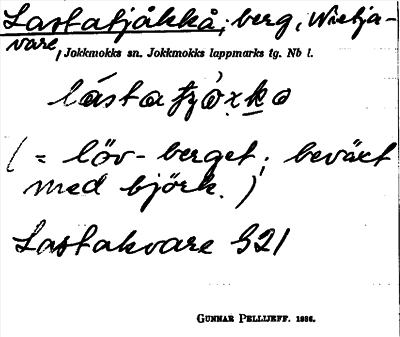 Lastatjåkkå; berg, Wietja-
vare,
Jokkmokks sn. Jokkmokks lappmarks tg. Nb l.
(= löv-berget; beväxt
med björk.)
Lastakvare S21
GUNNAR PELLIJEFF. 1986.